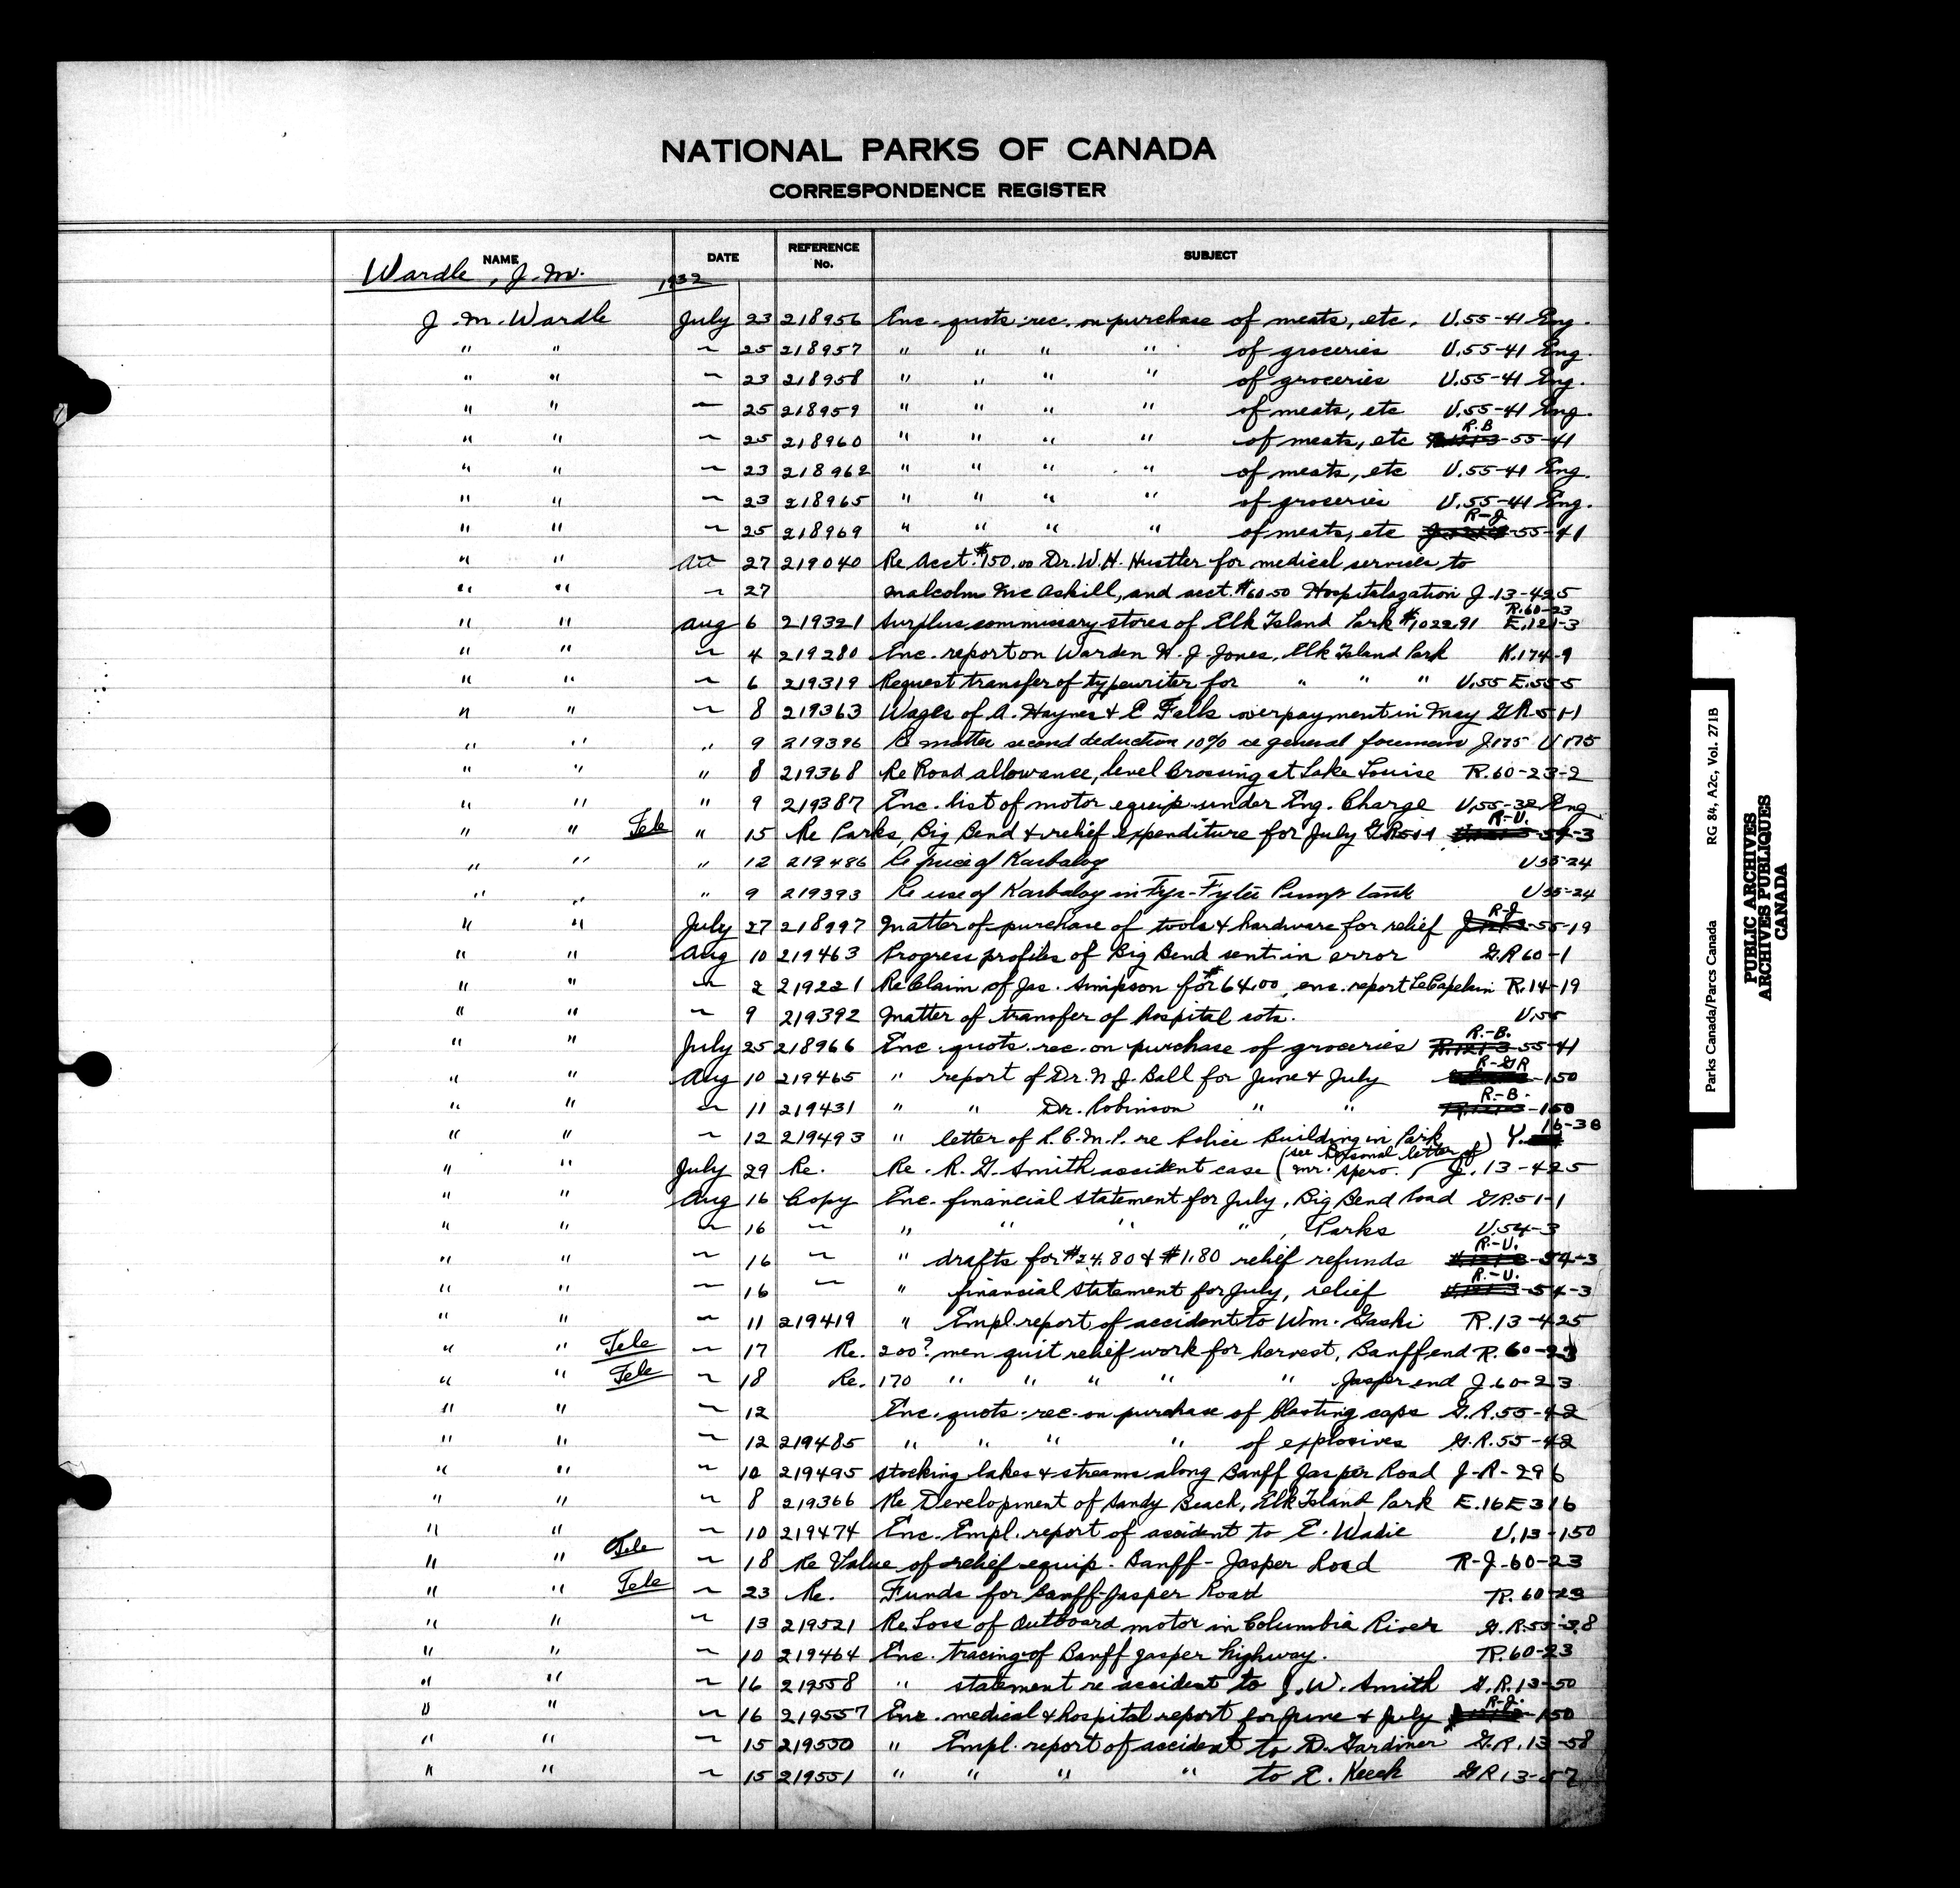 NATIONAL PARKS OF CANADA
CORRESPONDENCE REGISTER
NAME DATE REFERENCE No. SUBJECT
Wardle, J.M. 1932
J.M. Wardle July 23 218956 Enc. quots. rec. on purchase of meats, etc. U.55-41 Eng.
" " ~ 25 218957 " " " " of groceries U.55-41 Eng.
" " ~ 23 218958 " " " " of groceries U.55-41 Eng.
" " ~ 25 218959 " " " " of meats, etc U.55-41 Eng.
" " ~ 25 218960 " " " " of meats, etc R.B -55-41
" " ~ 23 218962 " " " " of meats, etc U.55-41 Eng.
" " ~ 23 218965 " " " " of groceries U.55-41 Eng.
" " ~ 25 218969 " " " " of meats, etc R-J -55-41
" " 27 219040 Re Acct. $150.00 Dr. W.H. Hustler for medical services to
" " ~ 27 Malcolm McAskill, and acct. $60.50 Hospitalization J.13-425
" " Aug 6 219321 Surplus commissary stores of Elk Island Park $1022.91 R.60-23 E.121-3
" " ~ 4 219280 Enc. report on Warden W.J. Jones, Elk Island Park K.174-9
" " ~ 6 219319 Request transfer of typewriter for " " " U.55 E.55-5
" " ~ 8 219363 Wages of A. Haynes & E Falk overpayment in May GR-51-1
" " " 9 219396 Re matter second deduction 10% re general foreman J175 U175
" " " 8 219368 Re Road allowance, level crossing at Lake Louise R.60-23-2
" " " 9 219387 Enc. list of motor equip. under Eng. Charge U.55-38 Eng
" " Tele " 15 Re Parks, Big Bend & relief expenditure for July GR51-1 R-U. -54-3
" " " 12 219486 Re price of Karbaloy U55-24
" " " 9 219393 Re use of Karbaloy in Fyr-Fyter Pump tank U55-24
" " July 27 218997 Matter of purchase of tools & hardware for relief R-J -55-19
" " Aug 10 219463 Progress profiles of Big Bend sent in error G.R 60-1
" " ~ 2 219221 Re Claim of Jas. Simpson for $64.00, enc. report LeCapelain R.14-19
" " ~ 9 219392 Matter of transfer of hospital cots. U.55
" " July 25 218966 Enc. quots. rec. on purchase of groceries R.-B. R.121-3-55-41
" " Aug 10 219465 " report of Dr. N.J. Ball for June & July R-GR -150
" " ~ 11 219431 " " Dr. Robinson " " R.-B. -150
" " ~ 12 219493 " letter of R.C.M.P. re Police Building in Park Y.16-38
" " July 29 Re. Re. R.G. Smith accident case (see Personal letter of Mr. Spero.) J.13-425
" " Aug 16 Copy Enc. financial statement for July, Big Bend Road GR.51-1
" " ~ 16 ~ " " " " , Parks U.54-3
" " ~ 16 ~ " drafts for $24.80 & $1.80 relief refunds R.-U. -54-3
" " ~ 16 ~ " financial statement for July, relief R.-U. -54-3
" " ~ 11 219419 " Empl. report of accident to Wm. Gaski R.13-425
" " Tele ~ 17 Re. 200? men quit relief work for harvest, Banff end R.60-23
" " Tele ~ 18 Re. 170 " " " " " Jasper end J.60-23
" " ~ 12 Enc. quots. rec. on purchase of blasting caps G.R.55-42
" " ~ 12 219485 " " " " of explosives G.R.55-42
" " ~ 10 219495 Stocking lakes & streams along Banff Jasper Road J-R-296
" " ~ 8 219366 Re Development of Sandy Beach, Elk Island Park E.16E316
" " ~ 10 219474 Enc. Empl. report of accident to E. Wadie U.13-150
" " Tele ~ 18 Re Value of relief equip. Banff-Jasper Road R-J-60-23
" " Tele ~ 23 Re. Funds for Banff-Jasper Road R.60-23
" " ~ 13 219521 Re Loss of Outboard motor in Columbia River G.R.55-38
" " ~ 10 219464 Enc. tracing of Banff Jasper highway. R.60-23
" " ~ 16 219558 " statement re accident to J.W. Smith G.R.13-50
" " ~ 16 219557 Enc. medical & hospital report for June & July R-J. -150
" " ~ 15 219550 " Empl. report of accident to D. Gardiner G.R.13-58
" " ~ 15 219551 " " " " to E. Keech GR13-57
Parks Canada/Parcs Canada RG 84, A2c, Vol. 271B
PUBLIC ARCHIVES
ARCHIVES PUBLIQUES
CANADA